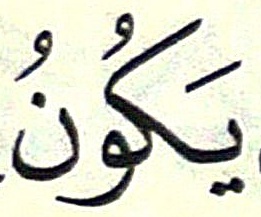 يَكُونُ